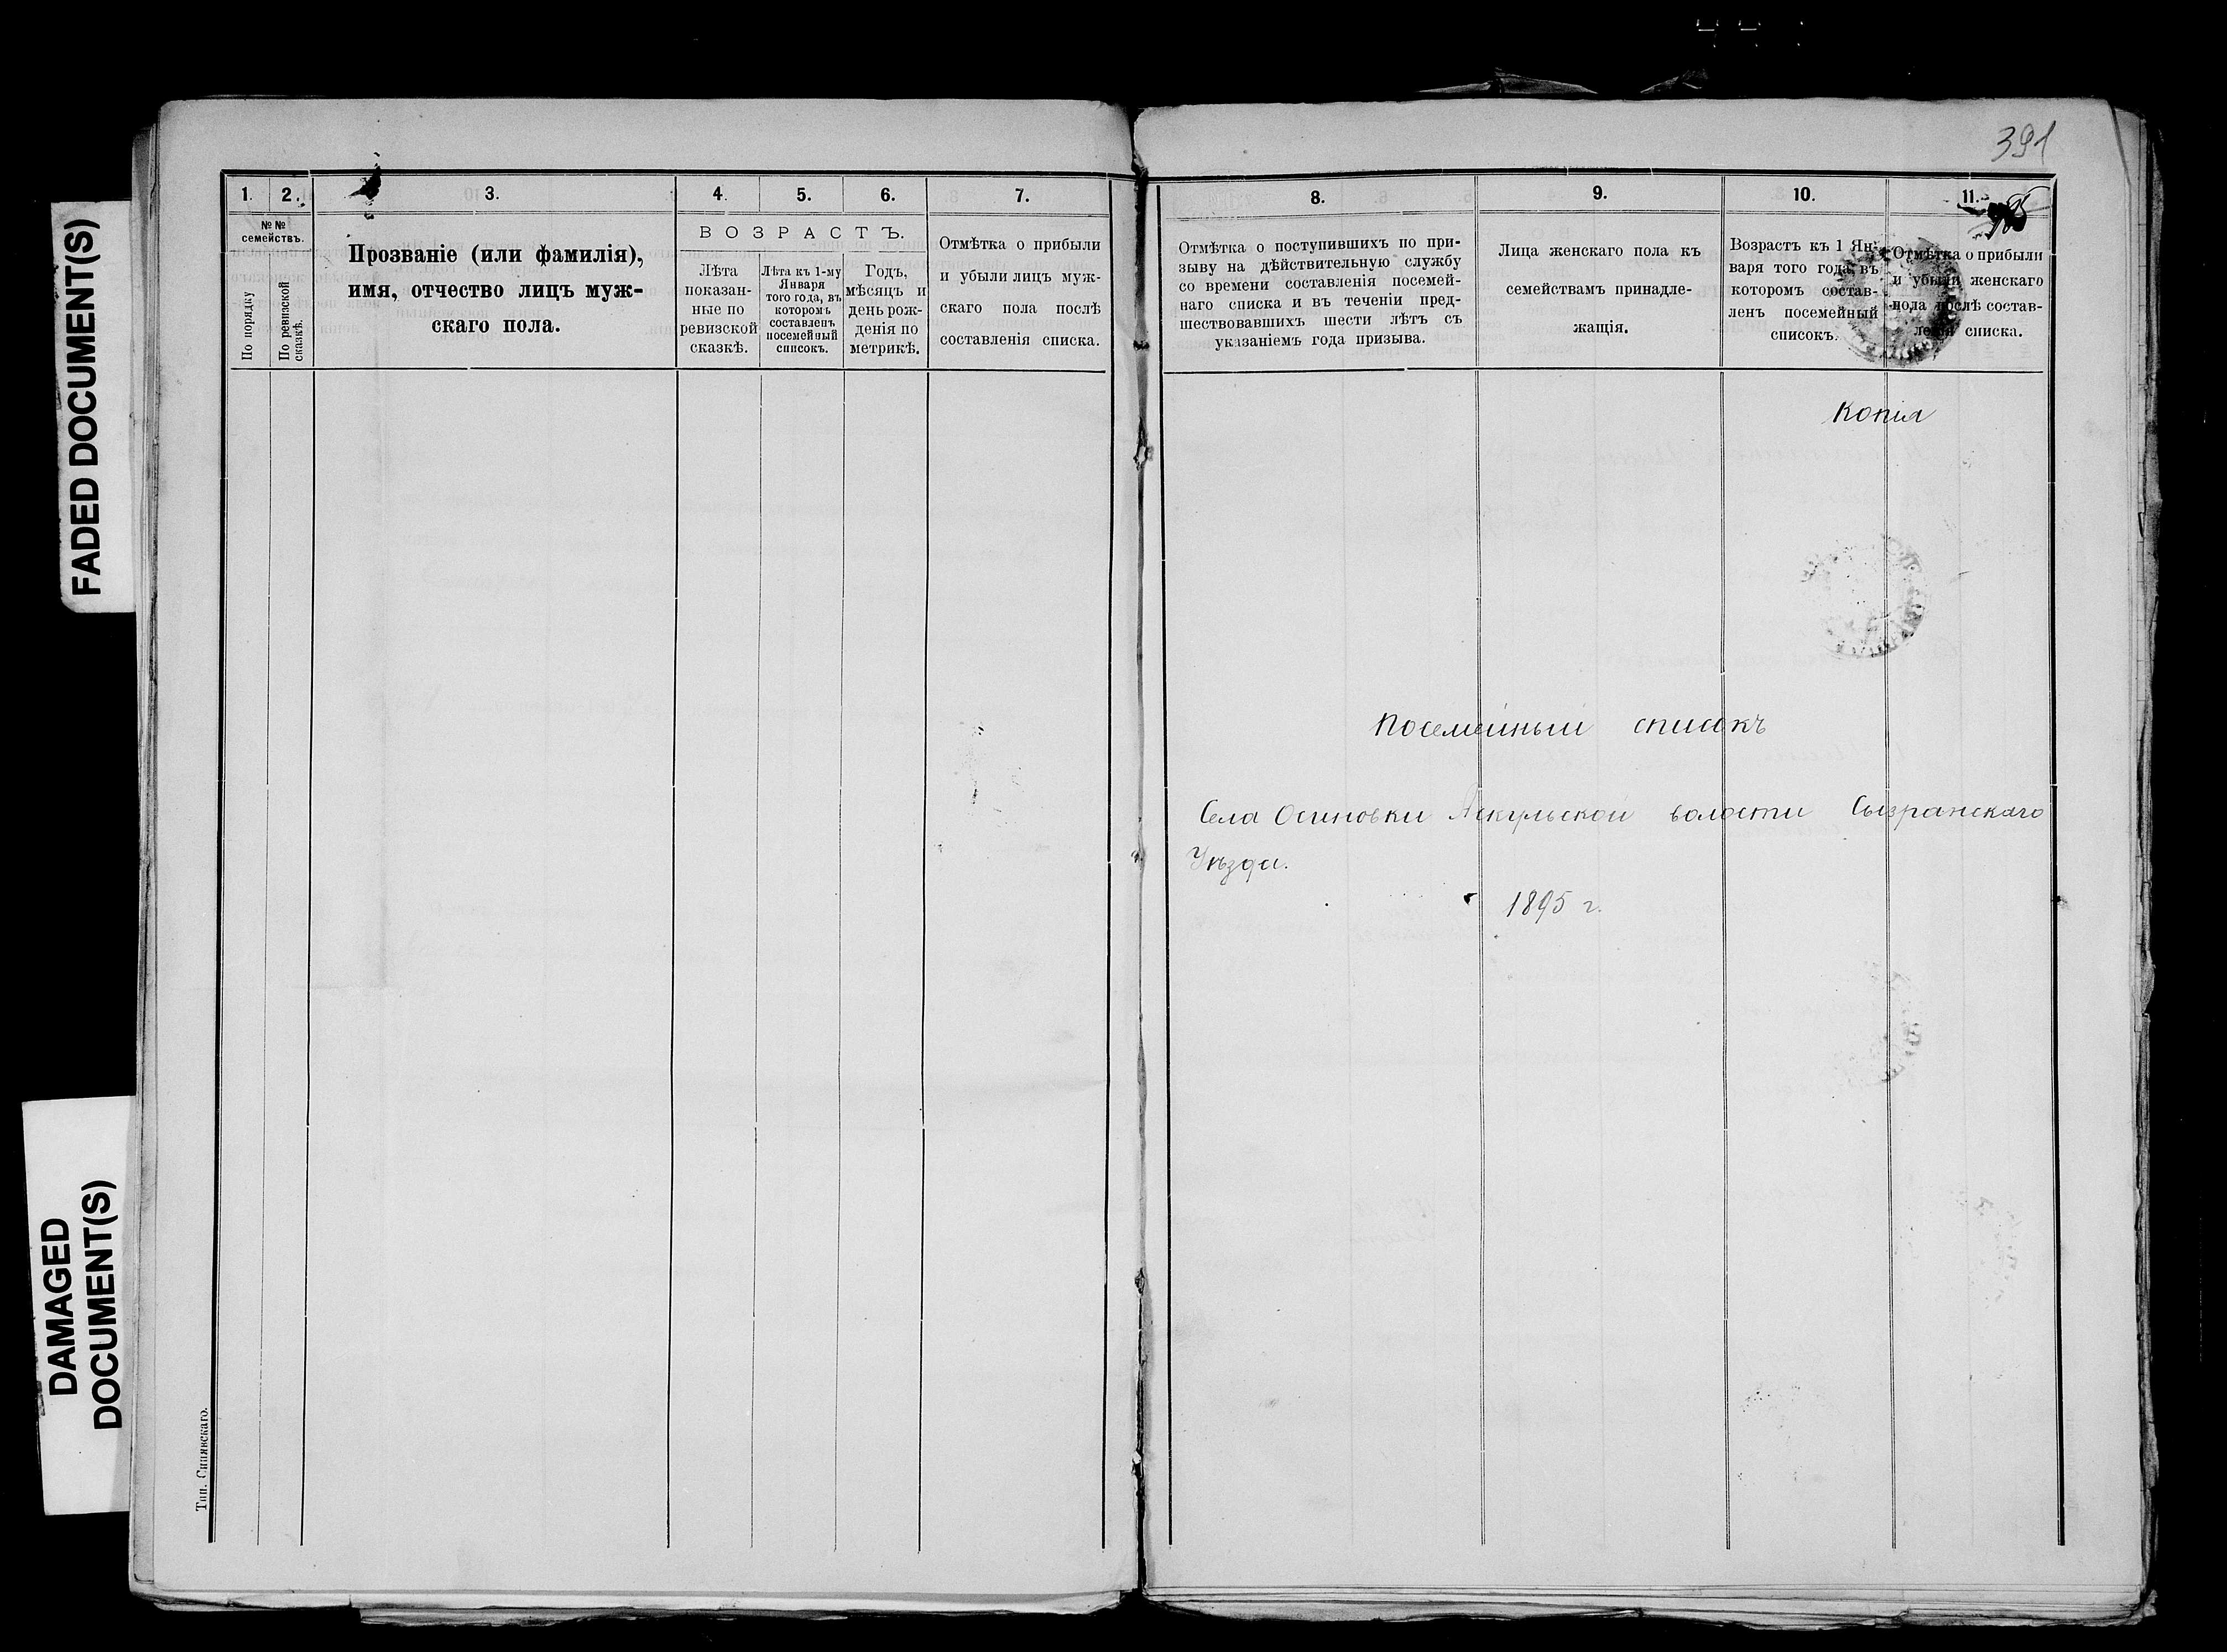 FADED DOCUMENT(S)
DAMAGED
DOCUMENT(S)
1.
2.
3.
4.
5.
6.
7.
№ №
семействъ.
По порядку
По ревизской
сказкѣ.
Прозваніе (или фамилія),
имя, отчество лицъ муж-
скаго пола.
ВОЗРАСТЪ.
Лѣта
показан-
ные по
ревизской
сказкѣ.
Лѣта къ 1-му
Января
того года, въ
которомъ
составленъ
посемейный
списокъ.
Годъ,
мѣсяцъ и
день рож-
денія по
метрикѣ.
Отмѣтка о прибыли
и убыли лицъ муж-
скаго пола послѣ
составленія списка.
Тип. Синявскаго.
391
8.
9.
10.
11.
Отмѣтка о поступившихъ по при-
зыву на дѣйствительную службу
со времени составленія посемей-
наго списка и въ теченіи пред-
шествовавшихъ шести лѣтъ съ
указаніемъ года призыва.
Лица женскаго пола къ
семействамъ принадле-
жащія.
Возрастъ къ 1 Ян-
варя того года, въ
которомъ состав-
ленъ посемейный
списокъ.
Отмѣтка о прибыли
и убыли женскаго
пола послѣ состав-
ленія списка.
Копія
Посемейный списокъ
Села Осиновки Аскульской волости Сызранскаго
Уѣзда.
1895 г.